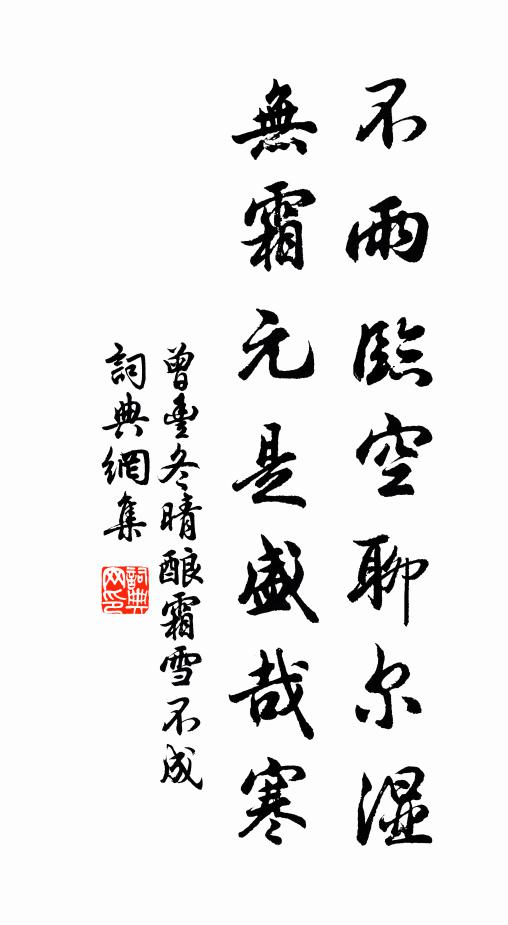 不雨臨空聊尔濕
無霜元是盛哉寒
曾豐冬晴酿霜雪不成
詞典網集
詞典
网印